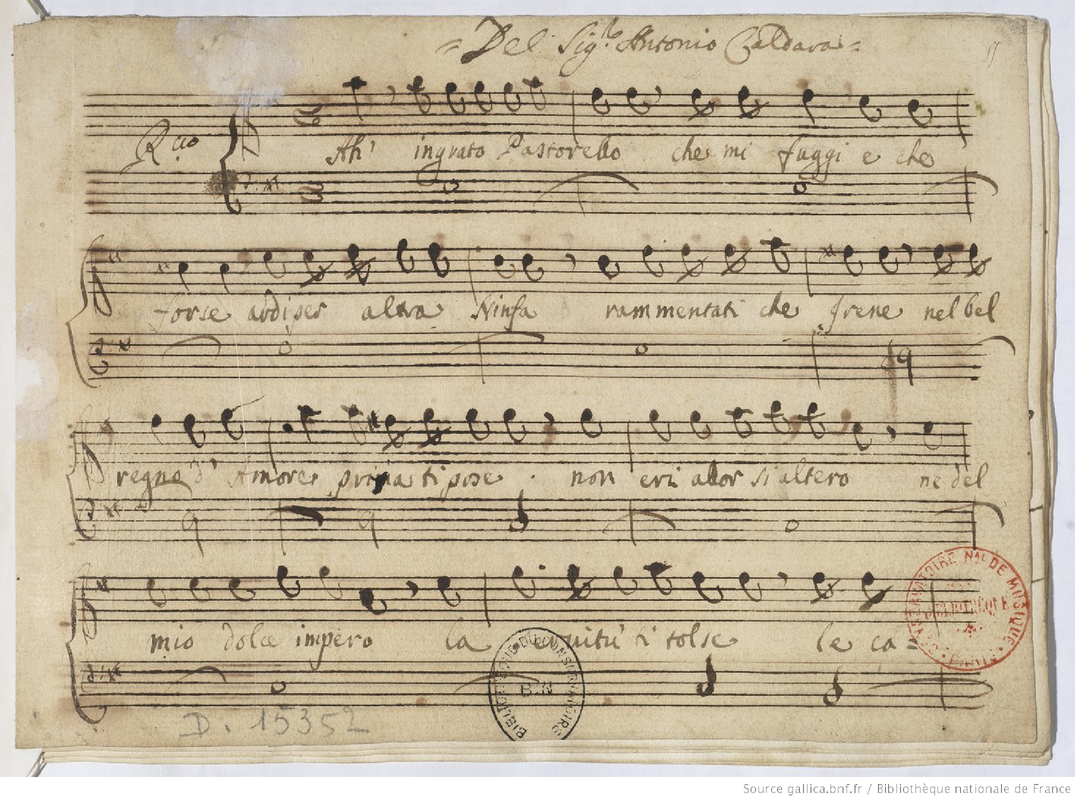 Del Sig.re Antonio Caldara
Ah' ingrato Pastorello che mi fuggi e che
forse ardi per altra Ninfa rammentati che Irene nel bel
regno d' Amore prima ti pose non eri alor si altero ne del
mio dolce impero la servitù ti tolse le ca=
D. 15352
CONSERVATOIRE NAL DE MUSIQUE
BIBLIOTHÈQUE
PARIS
BIBLIOTHEQUE DU CONSERVATOIRE
B.N
Source gallica.bnf.fr / Bibliothèque nationale de France